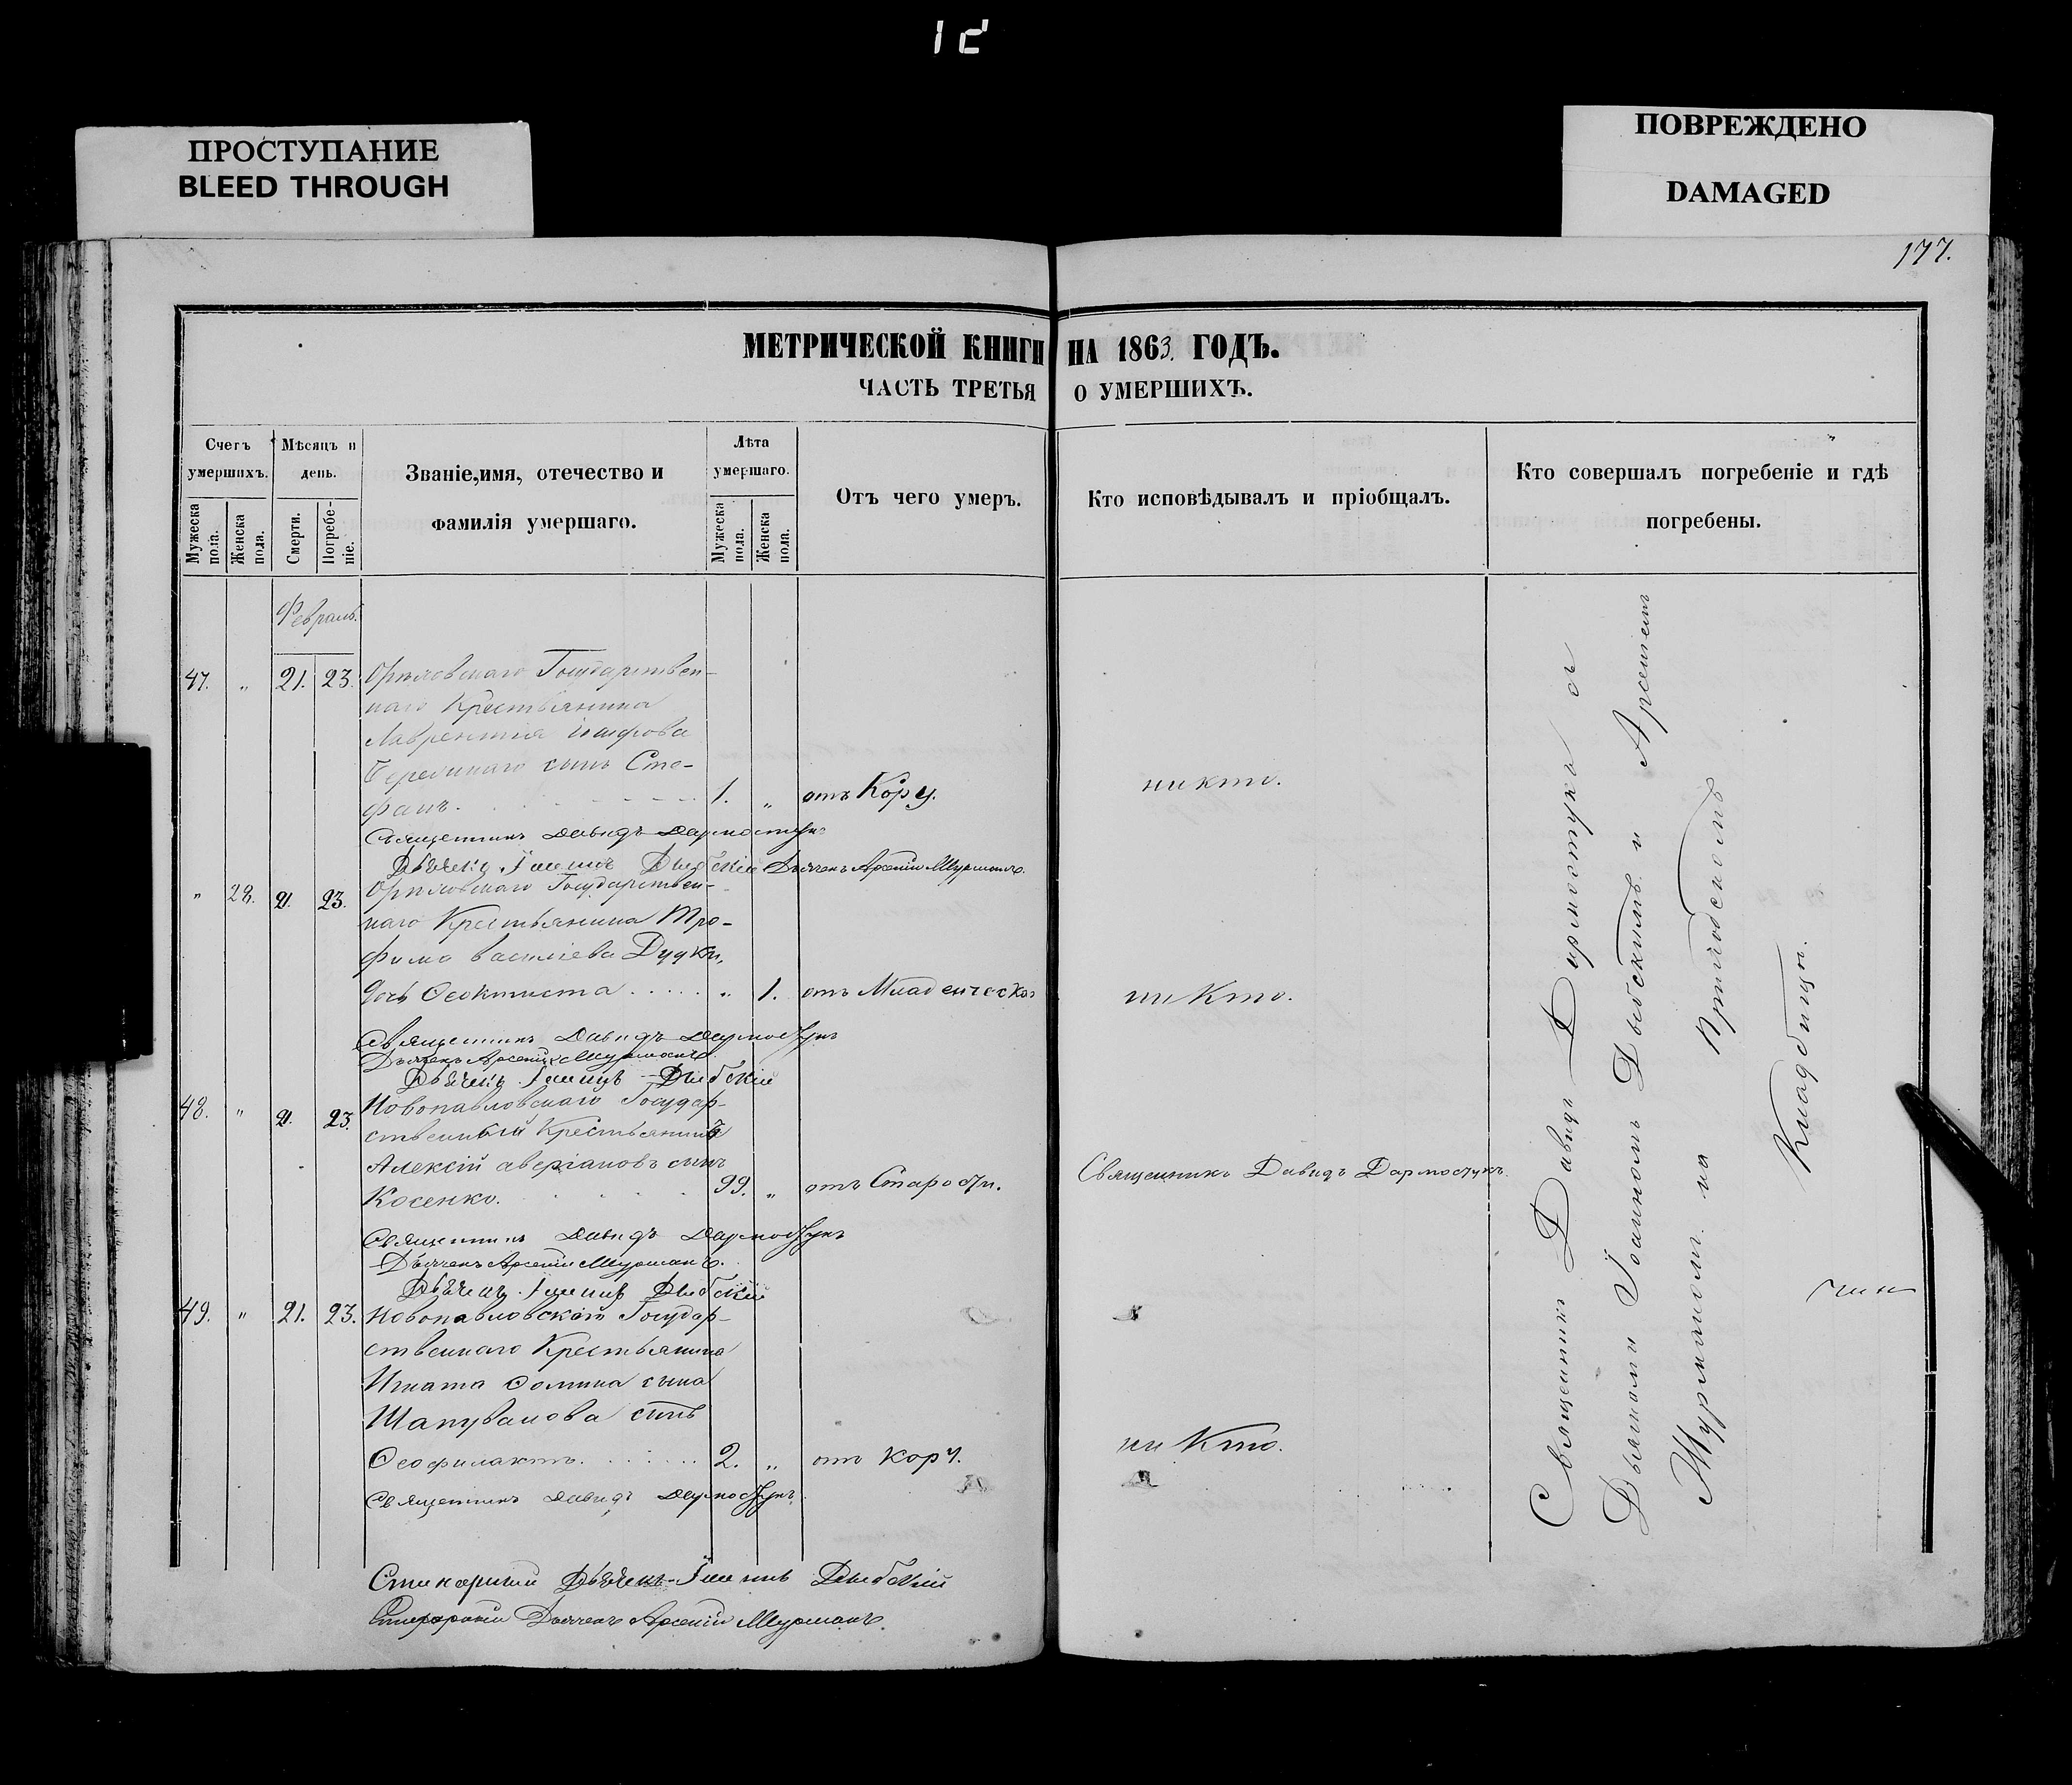 ПРОСТУПАНИЕ
BLEED THROUGH
ПОВРЕЖДЕНО
DAMAGED
177.
МЕТРИЧЕСКОЙ КНИГИ НА 1863. ГОДЪ.
ЧАСТЬ ТРЕТЬЯ О УМЕРШИХЪ.
Счетъ умершихъ.
Мужеска пола.
Женска пола.
Мѣсяцъ и день.
Смерти.
Погребеніе.
Званіе, имя, отечество и
фамилія умершаго.
Лѣта умершаго.
Мужеска пола.
Женска пола.
Отъ чего умеръ.
Кто исповѣдывалъ и пріобщалъ.
Кто совершалъ погребеніе и гдѣ
погребены.
Февраль.
47. " 21. 23. Орѣховскаго Государствен-
наго Крестьянина
Лаврентія
сынъ Сте-
фанъ. 1. " отъ Кору. никто.
Священникъ Давидъ Дармостукъ
Дьячекъ Іоаннъ Дыбскій Дьячекъ Арсеній Мурманъ.
" 28. 21. 23. Орѣховскаго Государствен-
наго Крестьянина Тро-
фима Васильева Дудки,
дочь Феоктиста " 1. отъ Младенческо никто.
Священникъ Давидъ Дармостукъ
Дьячекъ Арсеній Мурманъ.
Дьячекъ Іоаннъ Дыбскій
48. " 21. 23. Новопавловскаго Государ-
ственный Крестьянинъ
Алексій аверіановъ сынъ
Косенко. 99. " отъ Старости. Священникъ Давидъ Дармостукъ.
Священникъ Давидъ Дармостукъ
Дьячекъ Арсеній Мурманъ.
Дьячекъ Іоаннъ Дыбскій
49. " 21. 23. Новопавловскаго Государ-
ственнаго Крестьянина
Игната Фомина сына
Шапувалова сынъ
Феофилактъ. 2. " отъ кору. никто.
Священникъ Давидъ Дармостукъ.
Стихарный Дьячекъ Іоаннъ Дыбскій
Стихарный Дьячекъ Арсеній Мурманъ.
Священникъ Давидъ Дармостукъ съ
Дьячками Іоанномъ Дыбскимъ и Арсеніемъ
Мурманомъ. на Приходскомъ
Кладбищѣ.